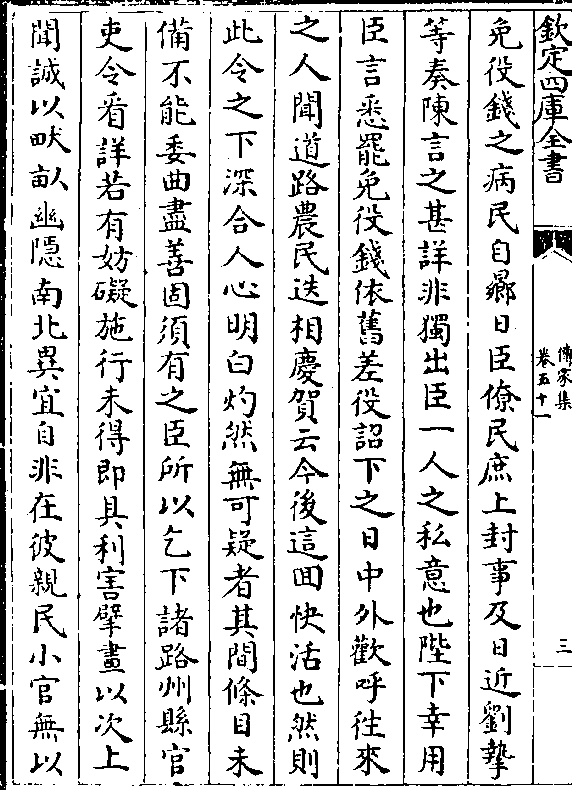 欽定四庫全書
傳家集
卷五十一
三
免役錢之病民自曏日臣僚民庶上封事及日近劉摯
等奏陳言之甚詳非獨出臣一人之私意也陛下幸用
臣言悉罷免役錢依舊差役詔下之日中外歡呼往來
之人聞道路農民迭相慶賀云今後這回快活也然則
此令之下深合人心明白灼然無可疑者其間條目未
備不能委曲盡善固須有之臣所以乞下諸路州縣官
吏令看詳若有妨礙施行未得即具利害擘畫以次上
聞誠以畎畝幽隱南北異宜自非在彼親民小官無以